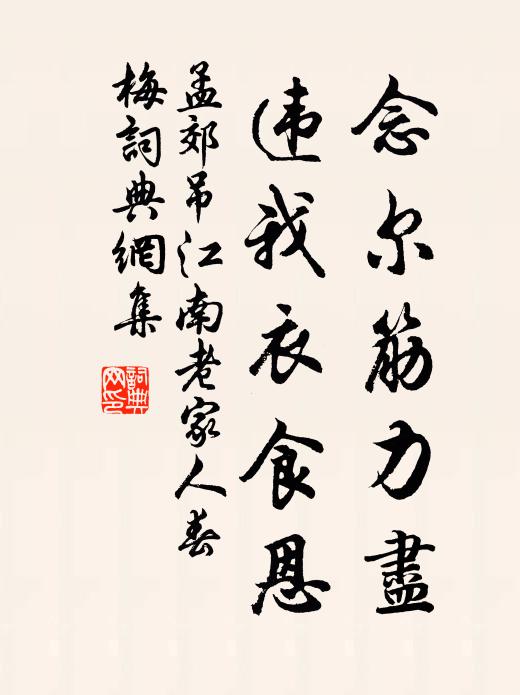 念尔筋力盡
违我衣食恩
孟郊吊江南老家人春
梅詞典網集
詞典
网印